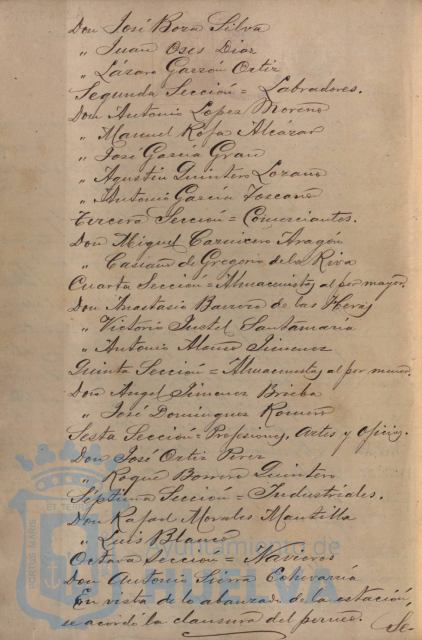 Don José Bora Silva
" Juan Oses Diaz
" Lázaro Garzón Ortiz
Segunda Sección = Labradores.
Don Antonio Lopez Moreno
" Manuel Rofa Alcázar
" José García Gran
" Agustin Quintero Lozano
" Antonio García Toscano
Tercera Sección = Comerciantes.
Don Miguel Carnicero Aragón
" Casiano de Gregorio de la Riva
Cuarta Sección = Almacenistas al por mayor.
Don Anastasio Barrera de las Heras
" Victorio Justel Santamaria
" Antonio Jimenez
Quinta Sección = Almacenistas al por menor.
Don Angel Jimenez Brieba
" José Dominguez Romero
Sesta Sección = Profesiones, Artes y oficios.
Don José Ortiz Perez
" Roque Borrero Quintero
Séptima Sección = Industriales.
Don Rafael Morales Mantilla
" Luis Blanco
Octava Sección = Navieros
Don Antonio Sierra Echevarría
En vista de lo abanzado de la estación
se acordó la clausura del Se-
Ayuntamiento de
HUELVA
PORTUS MARIS ET TERRAE